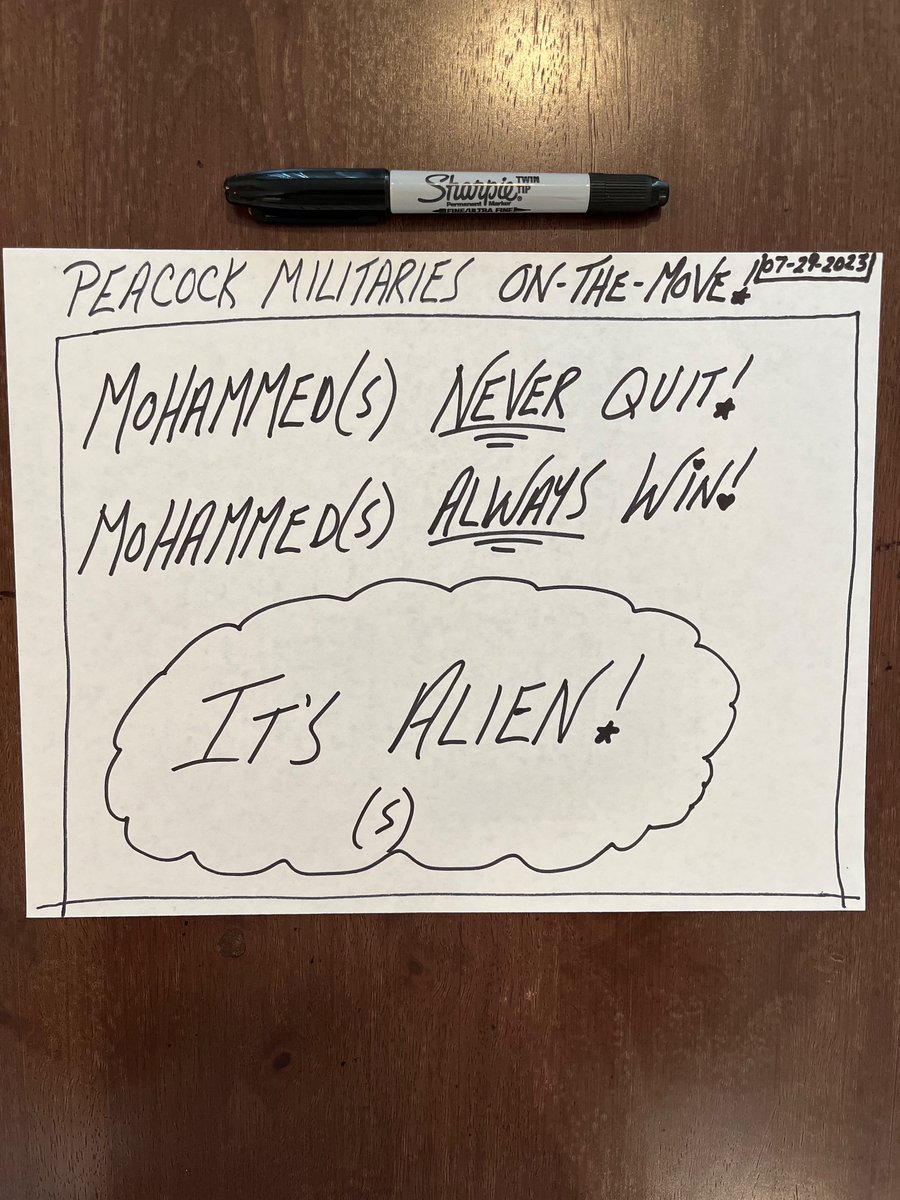 Sharpie® TWIN TIP
Permanent Marker
FINE/ULTRA FINE
PEACOCK MILITARIES ON-THE-MOVE! 07-29-2023
MOHAMMED(S) NEVER QUIT!
MOHAMMED(S) ALWAYS WIN!
IT'S ALIEN!
(S)